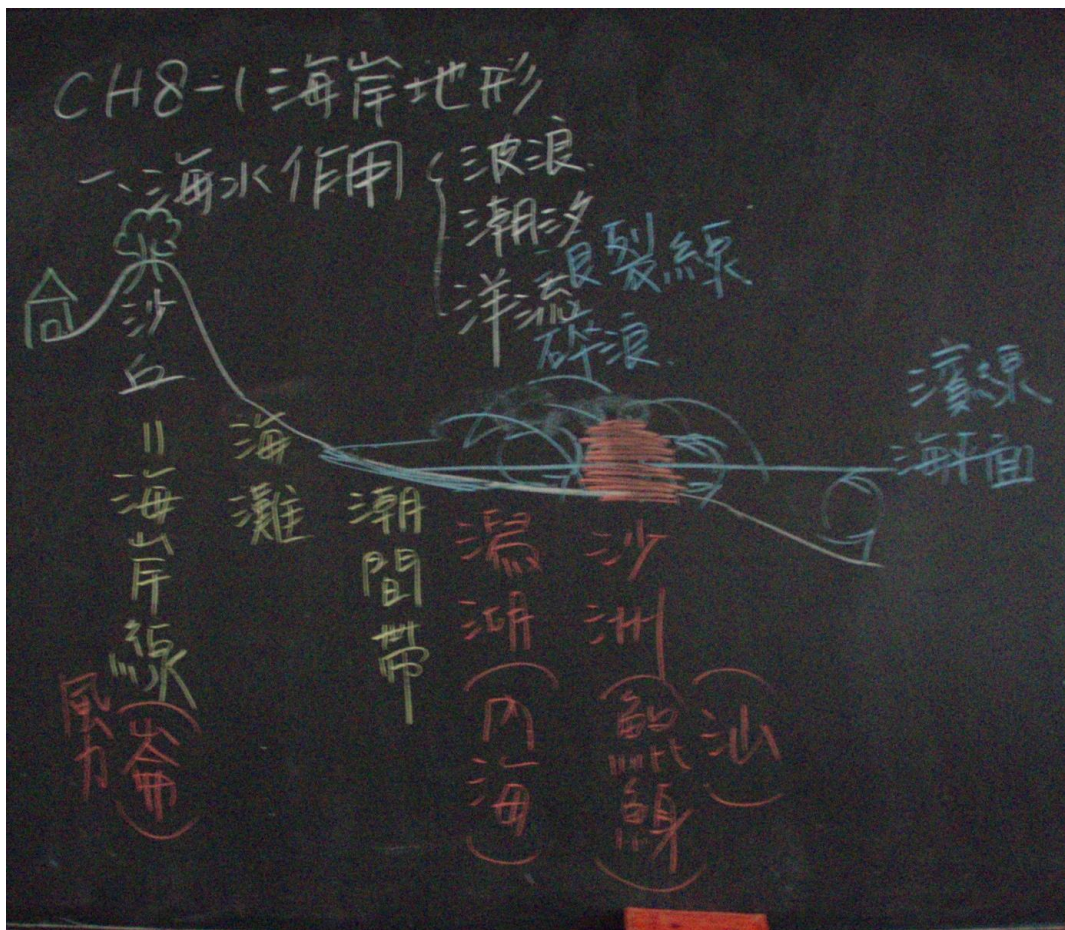 CH8-1海岸地形
一、海水作用
波浪
潮汐
洋流
浪裂線
碎浪
濱線
海平面
沙丘=海岸線(崙)
風力
海灘
潮間帶
潟湖(內海)
沙洲(鯤鯓)
(汕)